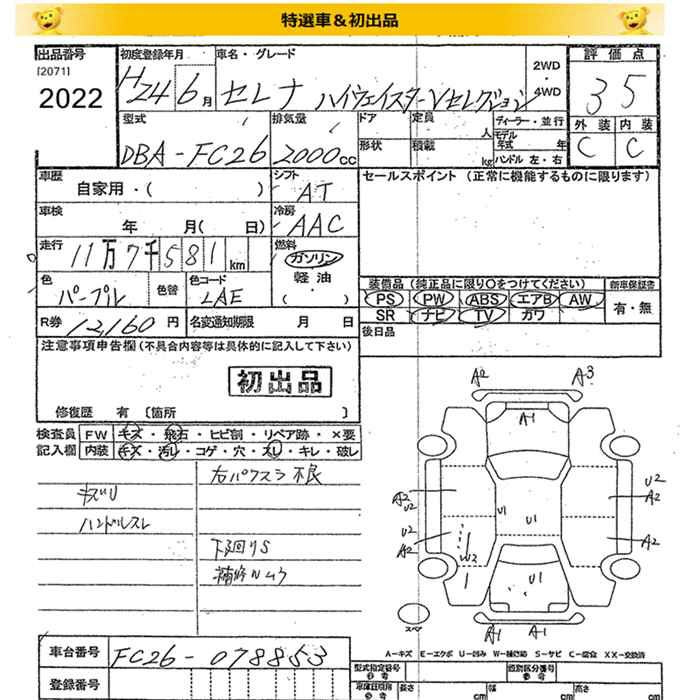 特選車＆初出品
出品番号
[2071]
2022
初度登録年月
H24 6月
車名・グレード
セレナ ハイウェイスターVセレクション
2WD
・
4WD
評価点
35
外装 内装
C C
型式
DBA-FC26
排気量
2000cc
ドア 定員
人
形状 積載
kg
ディーラー・並行
モデル年式 年
ハンドル 左・右
車歴
自家用・( )
シフト
AT
車検
年 月( 日)
冷房
AAC
走行
11万7千581km
燃料
ガソリン
軽油
( ・ )
色
パープル
色替
色コード
LAE
R券 12,160円
名変通知期限 月 日
セールスポイント (正常に機能するものに限ります)
装備品(純正品に限り○をつけてください)
PS PW ABS エアB AW
SR ナビ TV カワ
新車保証書
有・無
後日品
注意事項申告欄(不具合内容等は具体的に記入して下さい)
初出品
修復歴 有 [箇所 ]
検査員記入欄
FW キズ・飛石・ヒビ割・リペア跡・×要
内装 キズ・汚レ・コゲ・穴・スレ・キレ・破レ
右パワスラ不良
キズU
ハンドルスレ
下廻りS
補修ムラ
A2 A3
A1
A2 U2
U2 A2
U1 U1
U2 A2
W2
A2
U1
A1 A1
スペア
A-キズ E-エクボ U-凹み W-補修跡 S-サビ C-腐食 XX-交換済
車台番号
FC26-078853
登録番号
型式指定番号
参考
類別区分番号
参考
車庫証明用
参考
長さ cm
幅 cm
高さ cm